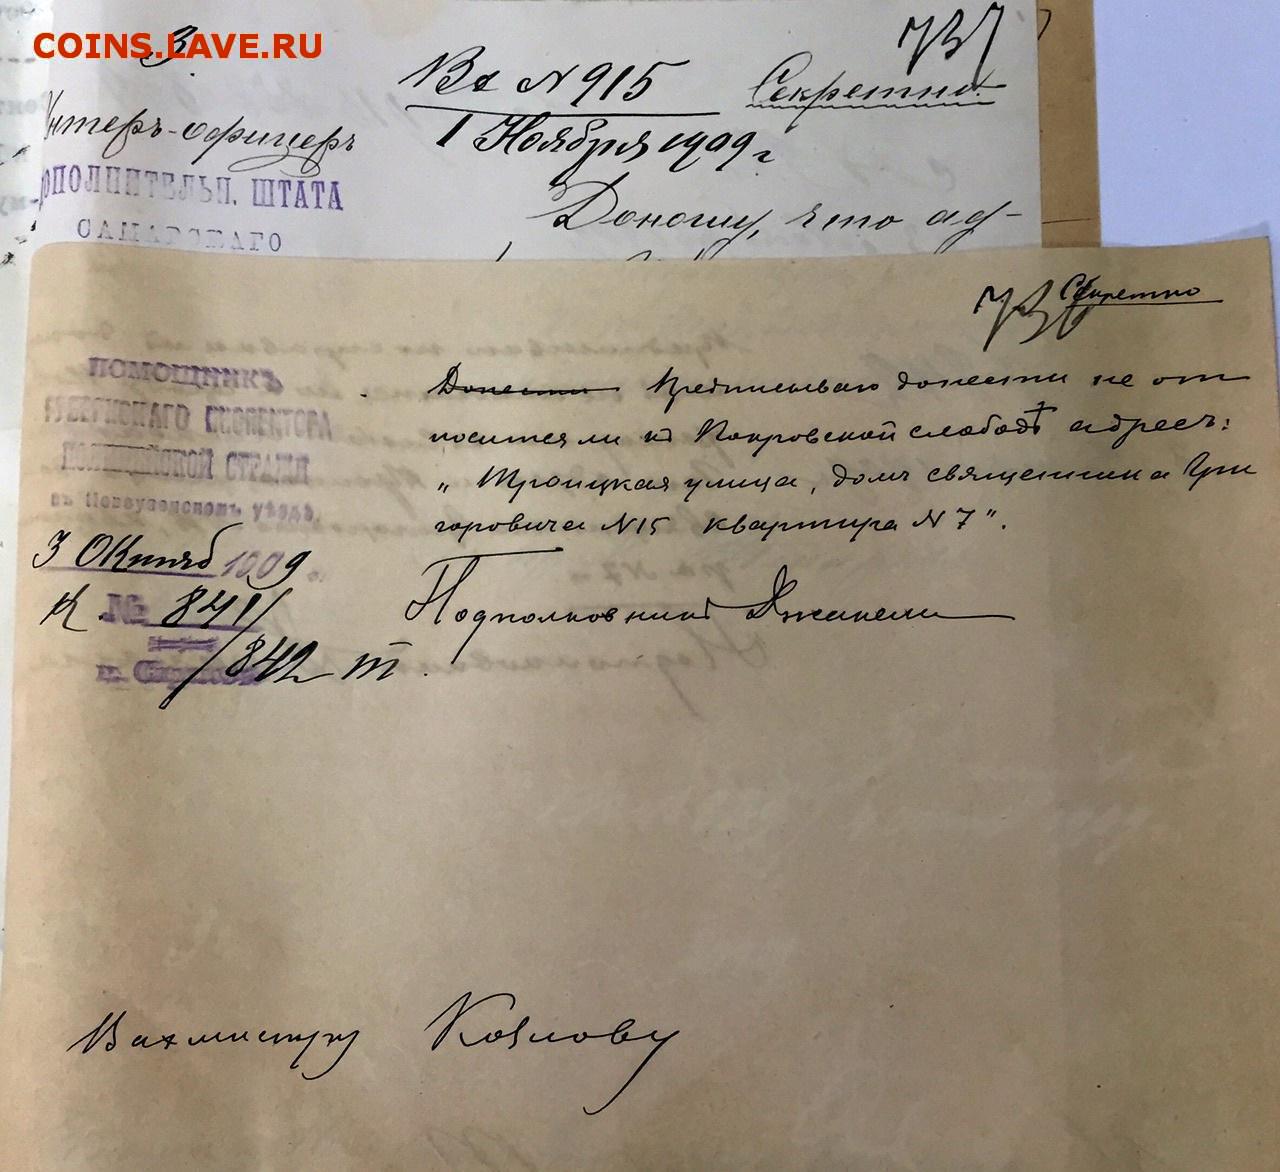 COINS.LAVE.RU
3.
737
Вх N 915
Секретно.
1 Ноября 1909 г
Унтеръ-офицеръ
ДОПОЛНИТЕЛЬН. ШТАТА
САМАРСКАГО
Доношу, что ад-
Секретно
ПОМОЩНИКЪ
ГУБЕРНСКАГО ИНСПЕКТОРА
ПОЛИЦЕЙСКОЙ СТРАЖИ
въ Новоузенскомъ уѣздѣ.
3 Октяб 1909 г.
№ 841/
/842
Донести Предписываю донести не от
носится ли къ Покровской слободѣ адресъ:
„Троицкая улица, домъ священника Гри
горовича N 15 квартира N 7".
Подполковникъ Джакели
Вахмистру Козлову